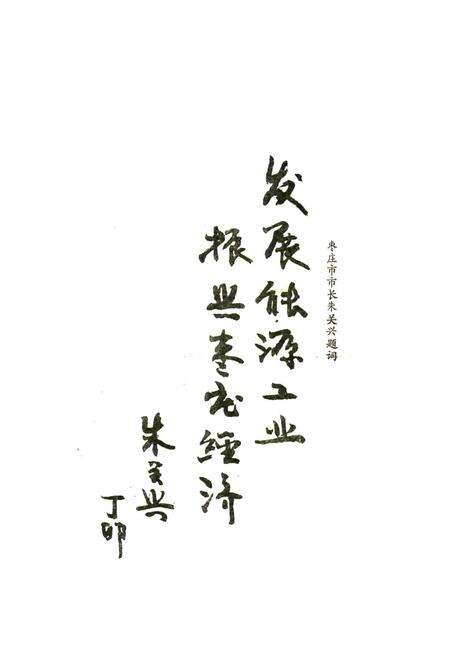 枣庄市市长朱关兴题词
发展能源工业
振兴枣庄經济
朱关兴
丁卯